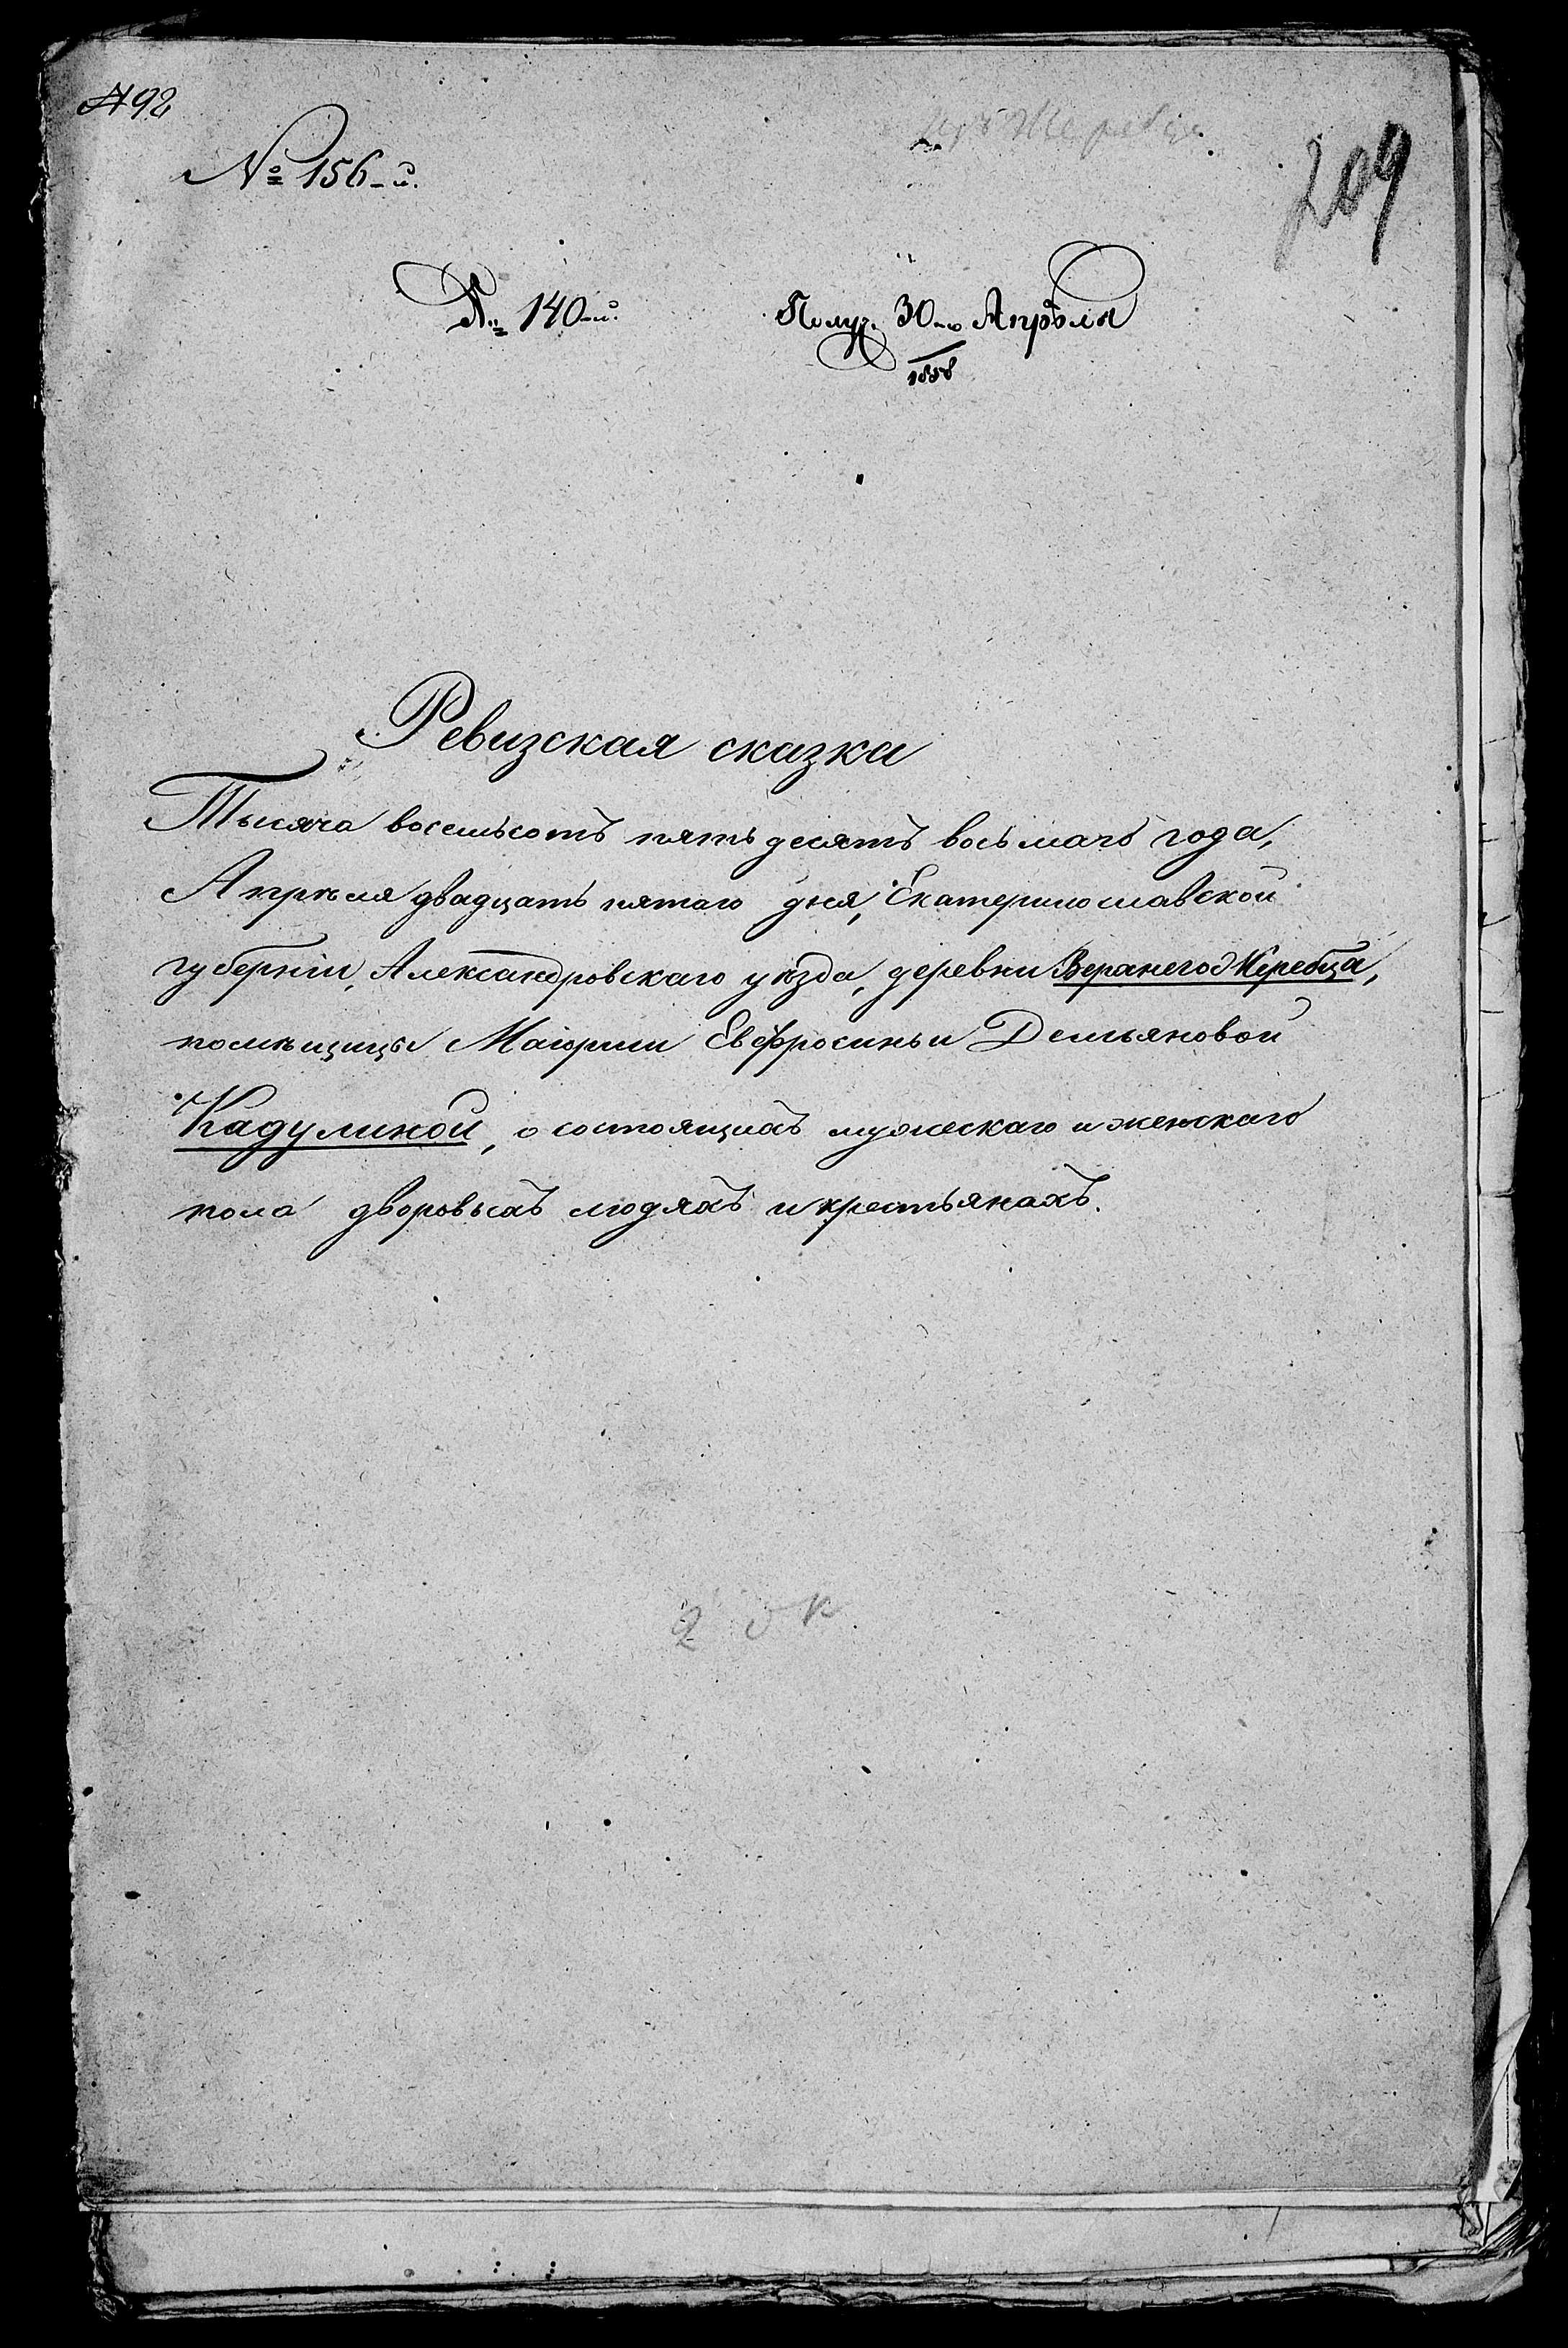 № 92
№ 156-й.
209
№ 140-й.
Получ. 30-го Апрѣля
1858
Ревизская сказка
Тысяча восемьсотъ пятьдесятъ восьмаго года,
Апрѣля двадцать пятаго дня, Екатеринославской
губерніи, Александровскаго уѣзда, деревни Верхнего Жеребца,
помѣщицы Маіорши Евфросиньи Демьяновой
Кадулиной, о состоящихъ мужескаго и женскаго
пола дворовыхъ людяхъ и крестьянахъ.